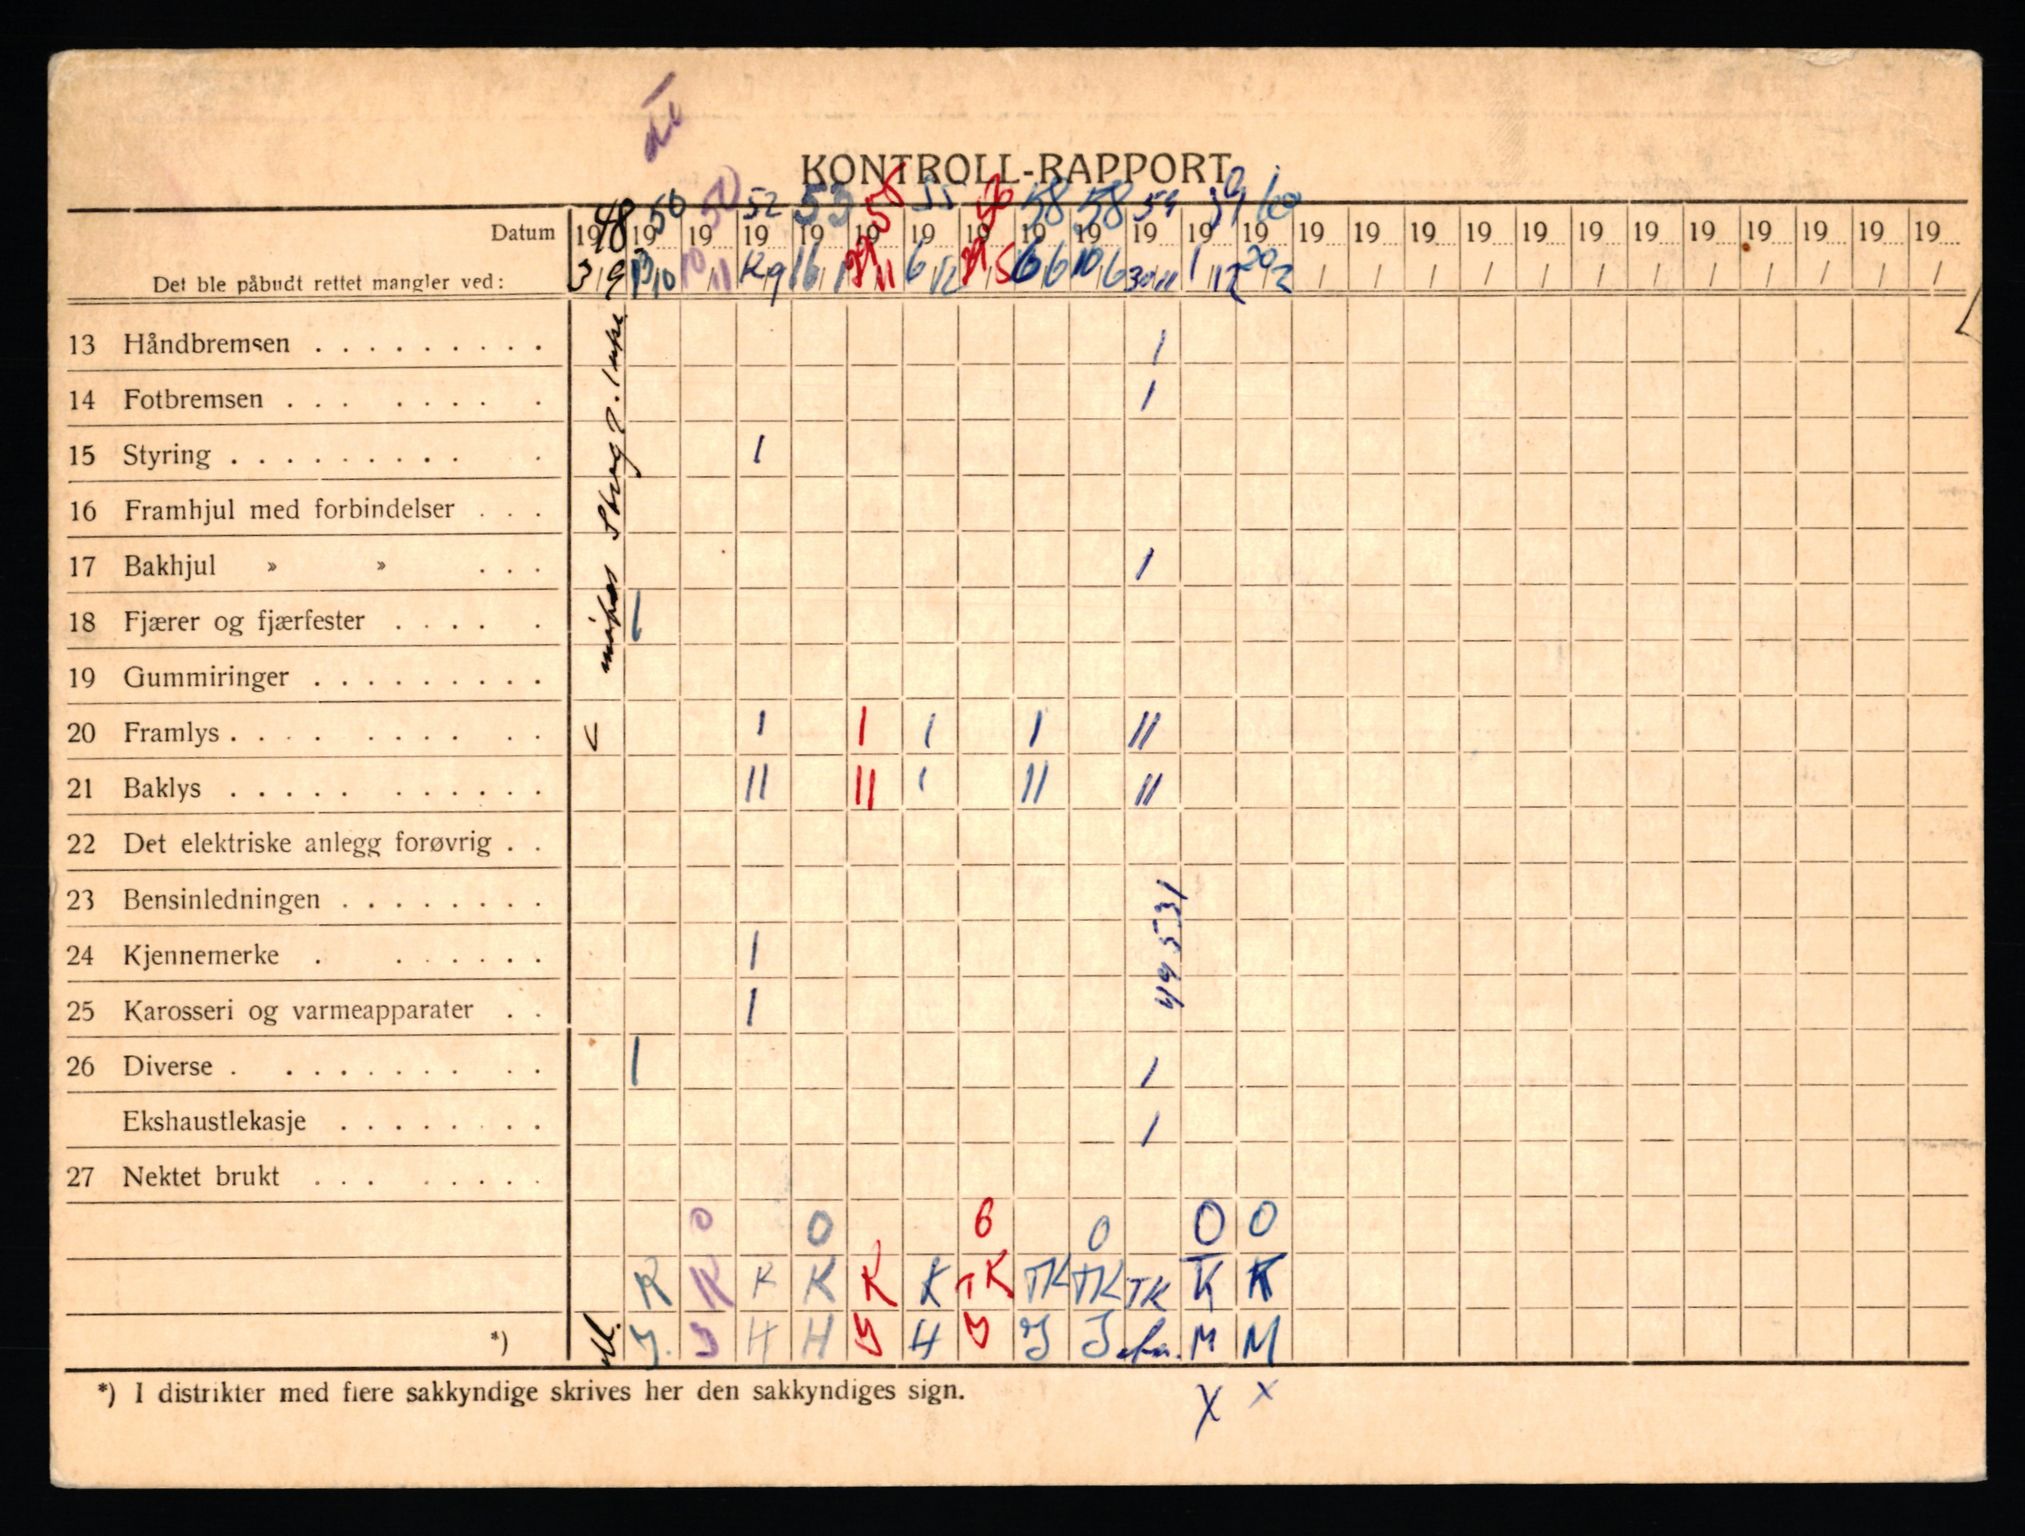 KONTROLL-RAPPORT
48 50 50 52 53 55 55 56 58 58 59 59 60
Datum 19 19 19 19 19 19 19 19 19 19 19 19 19 19 19 19 19 19 19 19 19 19 19 19 19
Det ble påbudt rettet mangler ved: 3/9 13/10 10/11 12/9 16/1 /11 6/12 /5 6/6 10/6 30/11 1/12 20/2 / / / / / / / / / / / /
13 Håndbremsen . . . . . . . . . 1
14 Fotbremsen . . . . . . . . 1
15 Styring . . . . . . . . . . 1
16 Framhjul med forbindelser . . .
17 Bakhjul » » . . . 1
18 Fjærer og fjærfester . . . . . 1
19 Gummiringer . . . . . . . . .
20 Framlys . . . . . . . . . . 1 1 1 1 11
21 Baklys . . . . . . . . . . . 11 11 1 11 11
22 Det elektriske anlegg forøvrig . .
23 Bensinledningen . . . . . . . .
24 Kjennemerke . . . . . . . 1
25 Karosseri og varmeapparater . . 1
26 Diverse . . . . . . . . . . 1 1
Ekshaustlekasje . . . . . . . . 1
27 Nektet brukt . . . . . . . .
0 0 6 0 0 0
K K K K K K TK TK TK TK K K
*) J. J H H J H J J J M M
*) I distrikter med flere sakkyndige skrives her den sakkyndiges sign.
X X